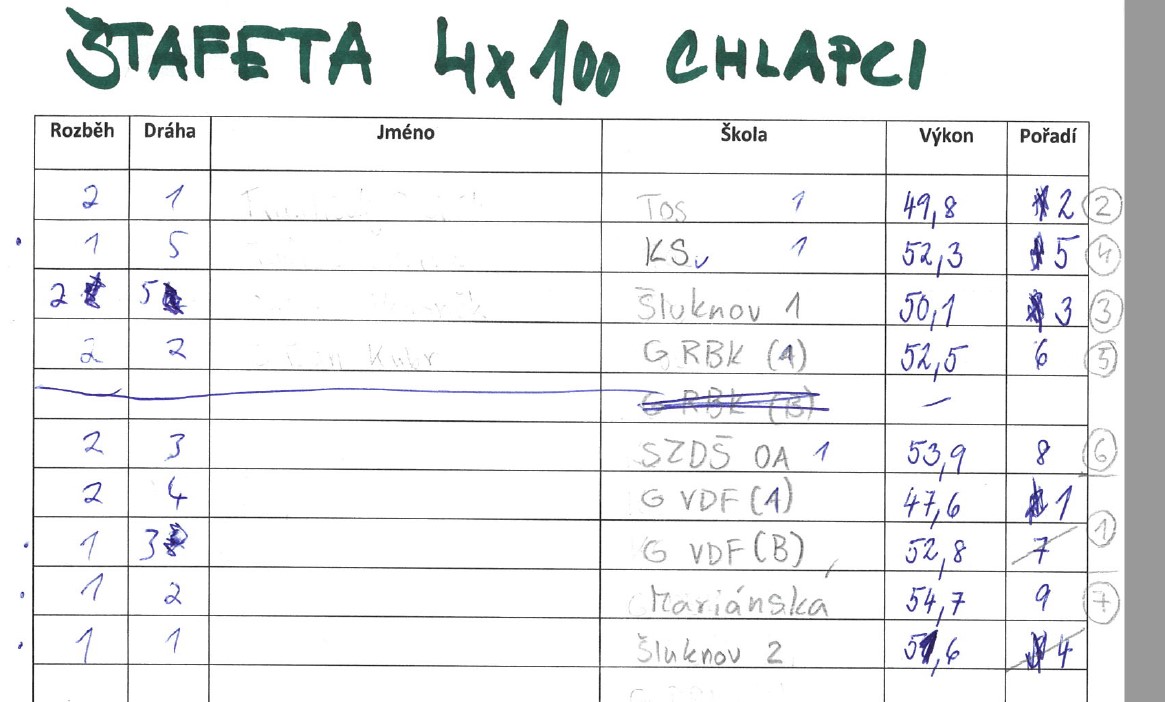 ŠTAFETA 4x100 CHLAPCI
Rozběh Dráha Jméno Škola Výkon Pořadí
2 1 Tos 1 49,8 2 2
1 5 KS 1 52,3 5 4
2 5 Šluknov 1 50,1 3 3
2 2 G RBK (A) 52,5 6 5
G RBK (B) –
2 3 SZDŠ OA 1 53,9 8 6
2 4 G VDF (A) 47,6 1 1
1 3 G VDF (B) 52,8 7
1 2 Mariánska 54,7 9 7
1 1 Šluknov 2 51,6 4